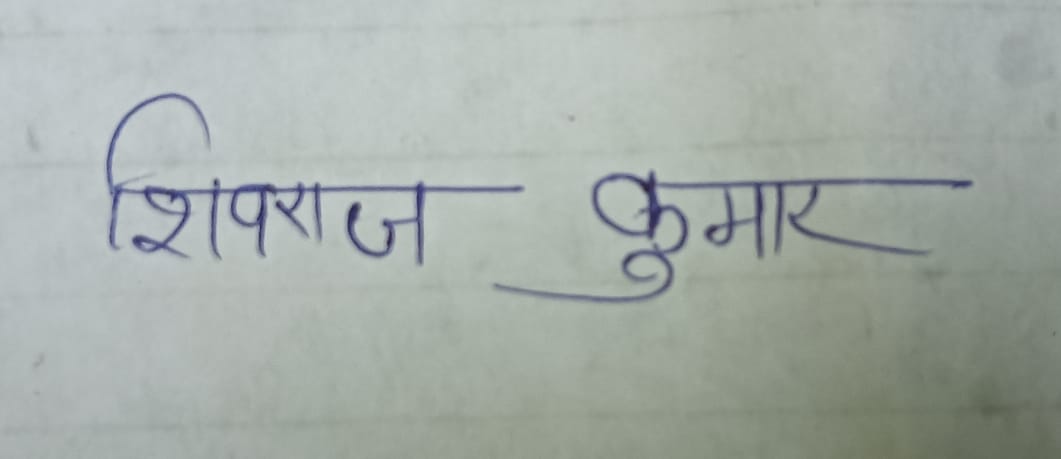 शिवराज कुमार